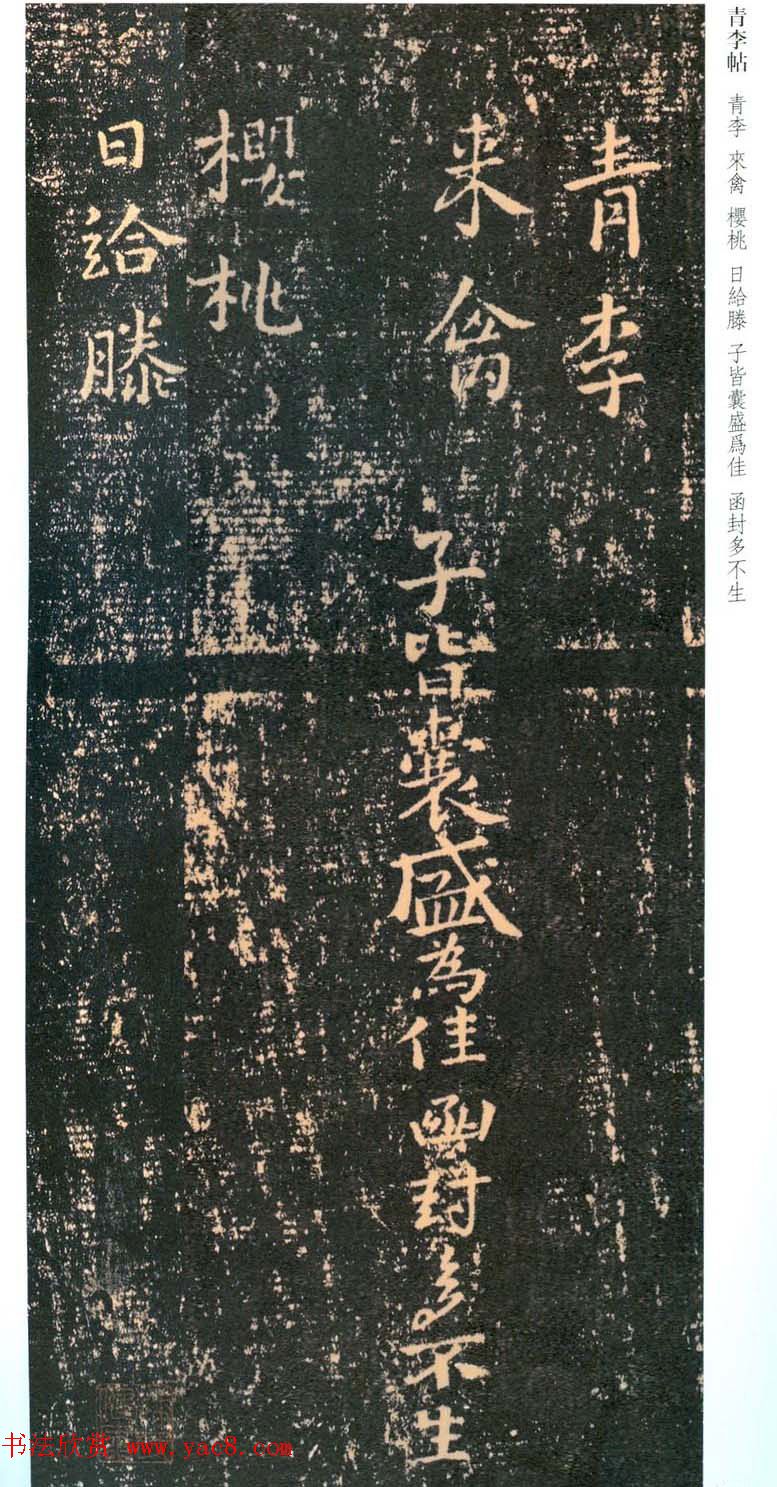 青李帖 青李 來禽 櫻桃 日給滕 子皆囊盛爲佳 函封多不生
青李
来禽
子皆囊盛為佳函封多不生
櫻桃
日給滕
书法欣赏 www.yac8.com